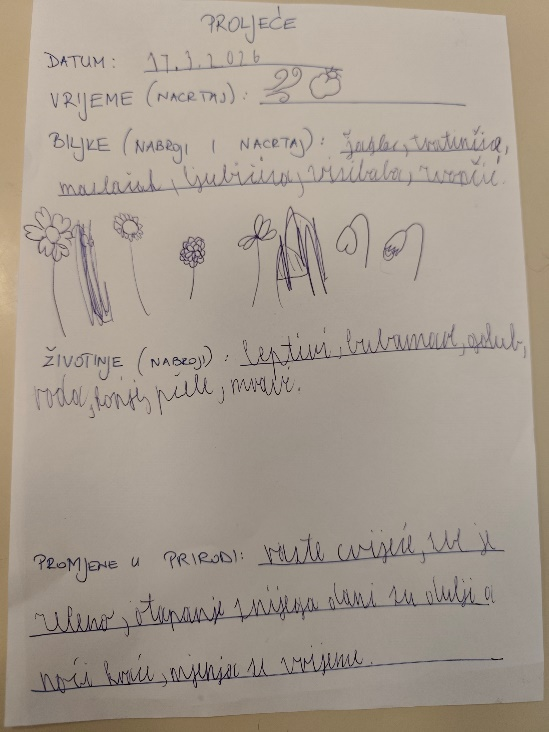 PROLJEĆE
DATUM: 17.3.2026
VRIJEME (NACRTAJ):
BILJKE (NABROJI I NACRTAJ): jaglac, tratinčica,
maslačak, ljubičica, visibaba, zvončić.
ŽIVOTINJE (NABROJI): leptiri, bubamare, golub,
roda, konji, pčele, mravi.
PROMJENE U PRIRODI: raste cvijeće, sve je
zeleno, otapanje snijega dani su dulji a
noći kraće, mjenja se vrijeme.